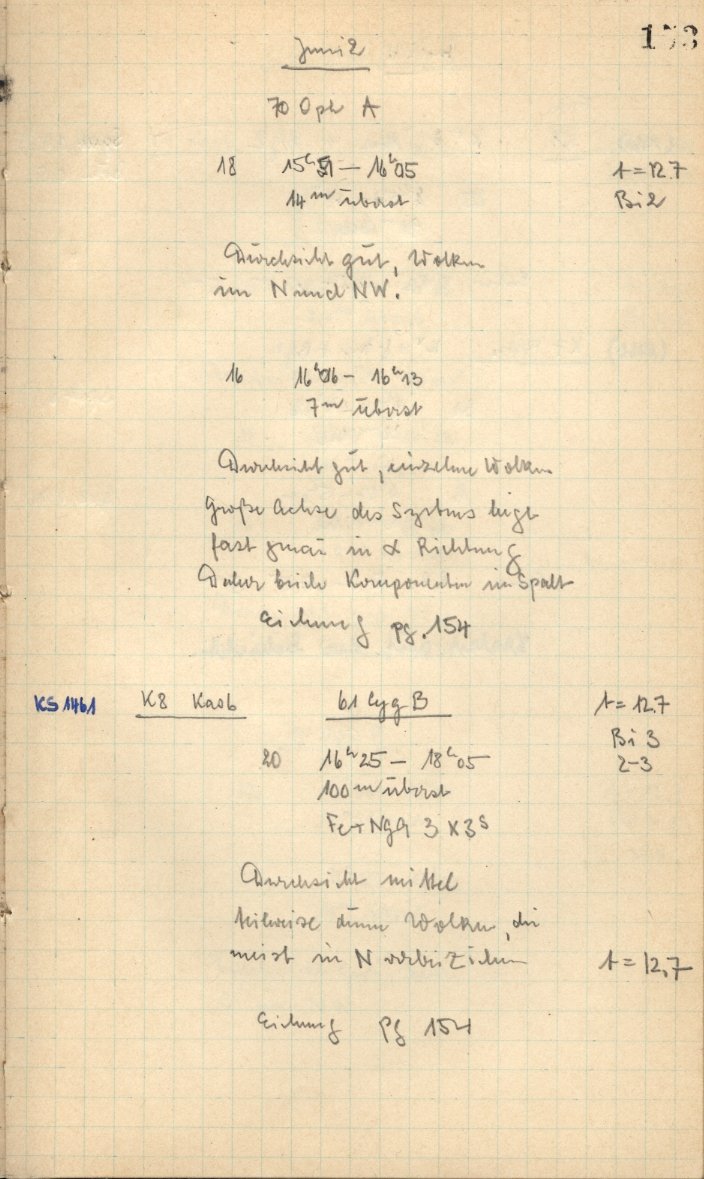 173
Juni 2
70 Oph A
18 15ʰ51 — 16ʰ05 t = 12.7
14ᵐ überst Bi 2
Durchsicht gut, Wolken
im N und NW.
16 16ʰ06 — 16ʰ13
7ᵐ überst
Durchsicht gut, einzelne Wolken
Große Achse des Systems liegt
fast genau in α Richtung
Daher beide Komponenten im Spalt
Eichung pg. 154
KS 1461 K8 Kasb 61 Cyg B t = 12.7
Bi 3
20 16ʰ25 — 18ʰ05 2-3
100ᵐ überst
Fe + 3 x 3ˢ
Durchsicht mittel
teilweise dünne Wolken, die
meist in N vorbeiziehen t = 12,7
Eichung pg 154